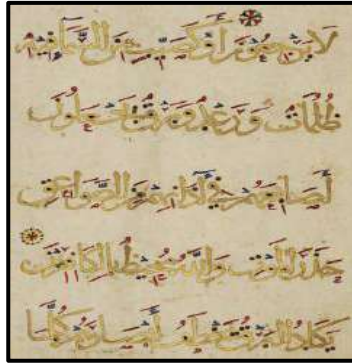 لَا يَرْجِعُونَ أَوْ كَصَيِّبٍ مِنَ السَّمَاءِ فِيهِ
ظُلُمَاتٌ وَرَعْدٌ وَبَرْقٌ يَجْعَلُونَ
أَصَابِعَهُمْ فِي آذَانِهِمْ مِنَ الصَّوَاعِقِ
حَذَرَ الْمَوْتِ وَاللَّهُ مُحِيطٌ بِالْكَافِرِينَ
يَكَادُ الْبَرْقُ يَخْطَفُ أَبْصَارَهُمْ كُلَّمَا